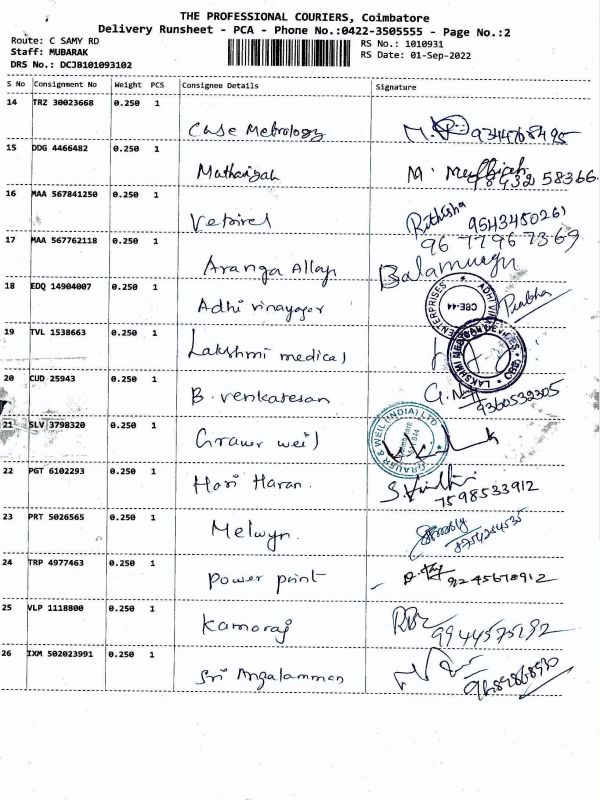 THE PROFESSIONAL COURIERS, Coimbatore
Delivery Runsheet - PCA - Phone No.:0422-3505555 - Page No.:2
Route: C SAMY RD
RS No.: 1010931
Staff: MUBARAK
RS Date: 01-Sep-2022
DRS No.: DCJB101093102
S No Consignment No Weight PCS Consignee Details Signature
14 TRZ 30023668 0.250 1
Case Metrology
15 DDG 4466482 0.250 1
16 MAA 567841250 0.250 1
Rithisha 9543450261
17 MAA 567762118 0.250 1
9677967369
Balamurugn
18 EDQ 14904007 0.250 1
ENTERPRISES * ADHI VIN
CBE-44
Adhi vinayagar Prabha
19 TVL 1538663 0.250 1
LAKSHMI MEDICAL
Lakshmi medical
20 CUD 25943 0.250 1
B. venkatesan
9360539305
21 SLV 3798320 0.250 1
GRAUER & WEIL (INDIA) LTD
Grauer weil
22 PGT 6102293 0.250 1
Hari Haran.
7598533912
23 PRT 5026565 0.250 1
Melwyn.
8754254535
24 TRP 4977463 0.250 1
Power point
25 VLP 1118800 0.250 1
Kamaraj
9944575192
26 IXM 502023991 0.250 1
Sri Angalamman